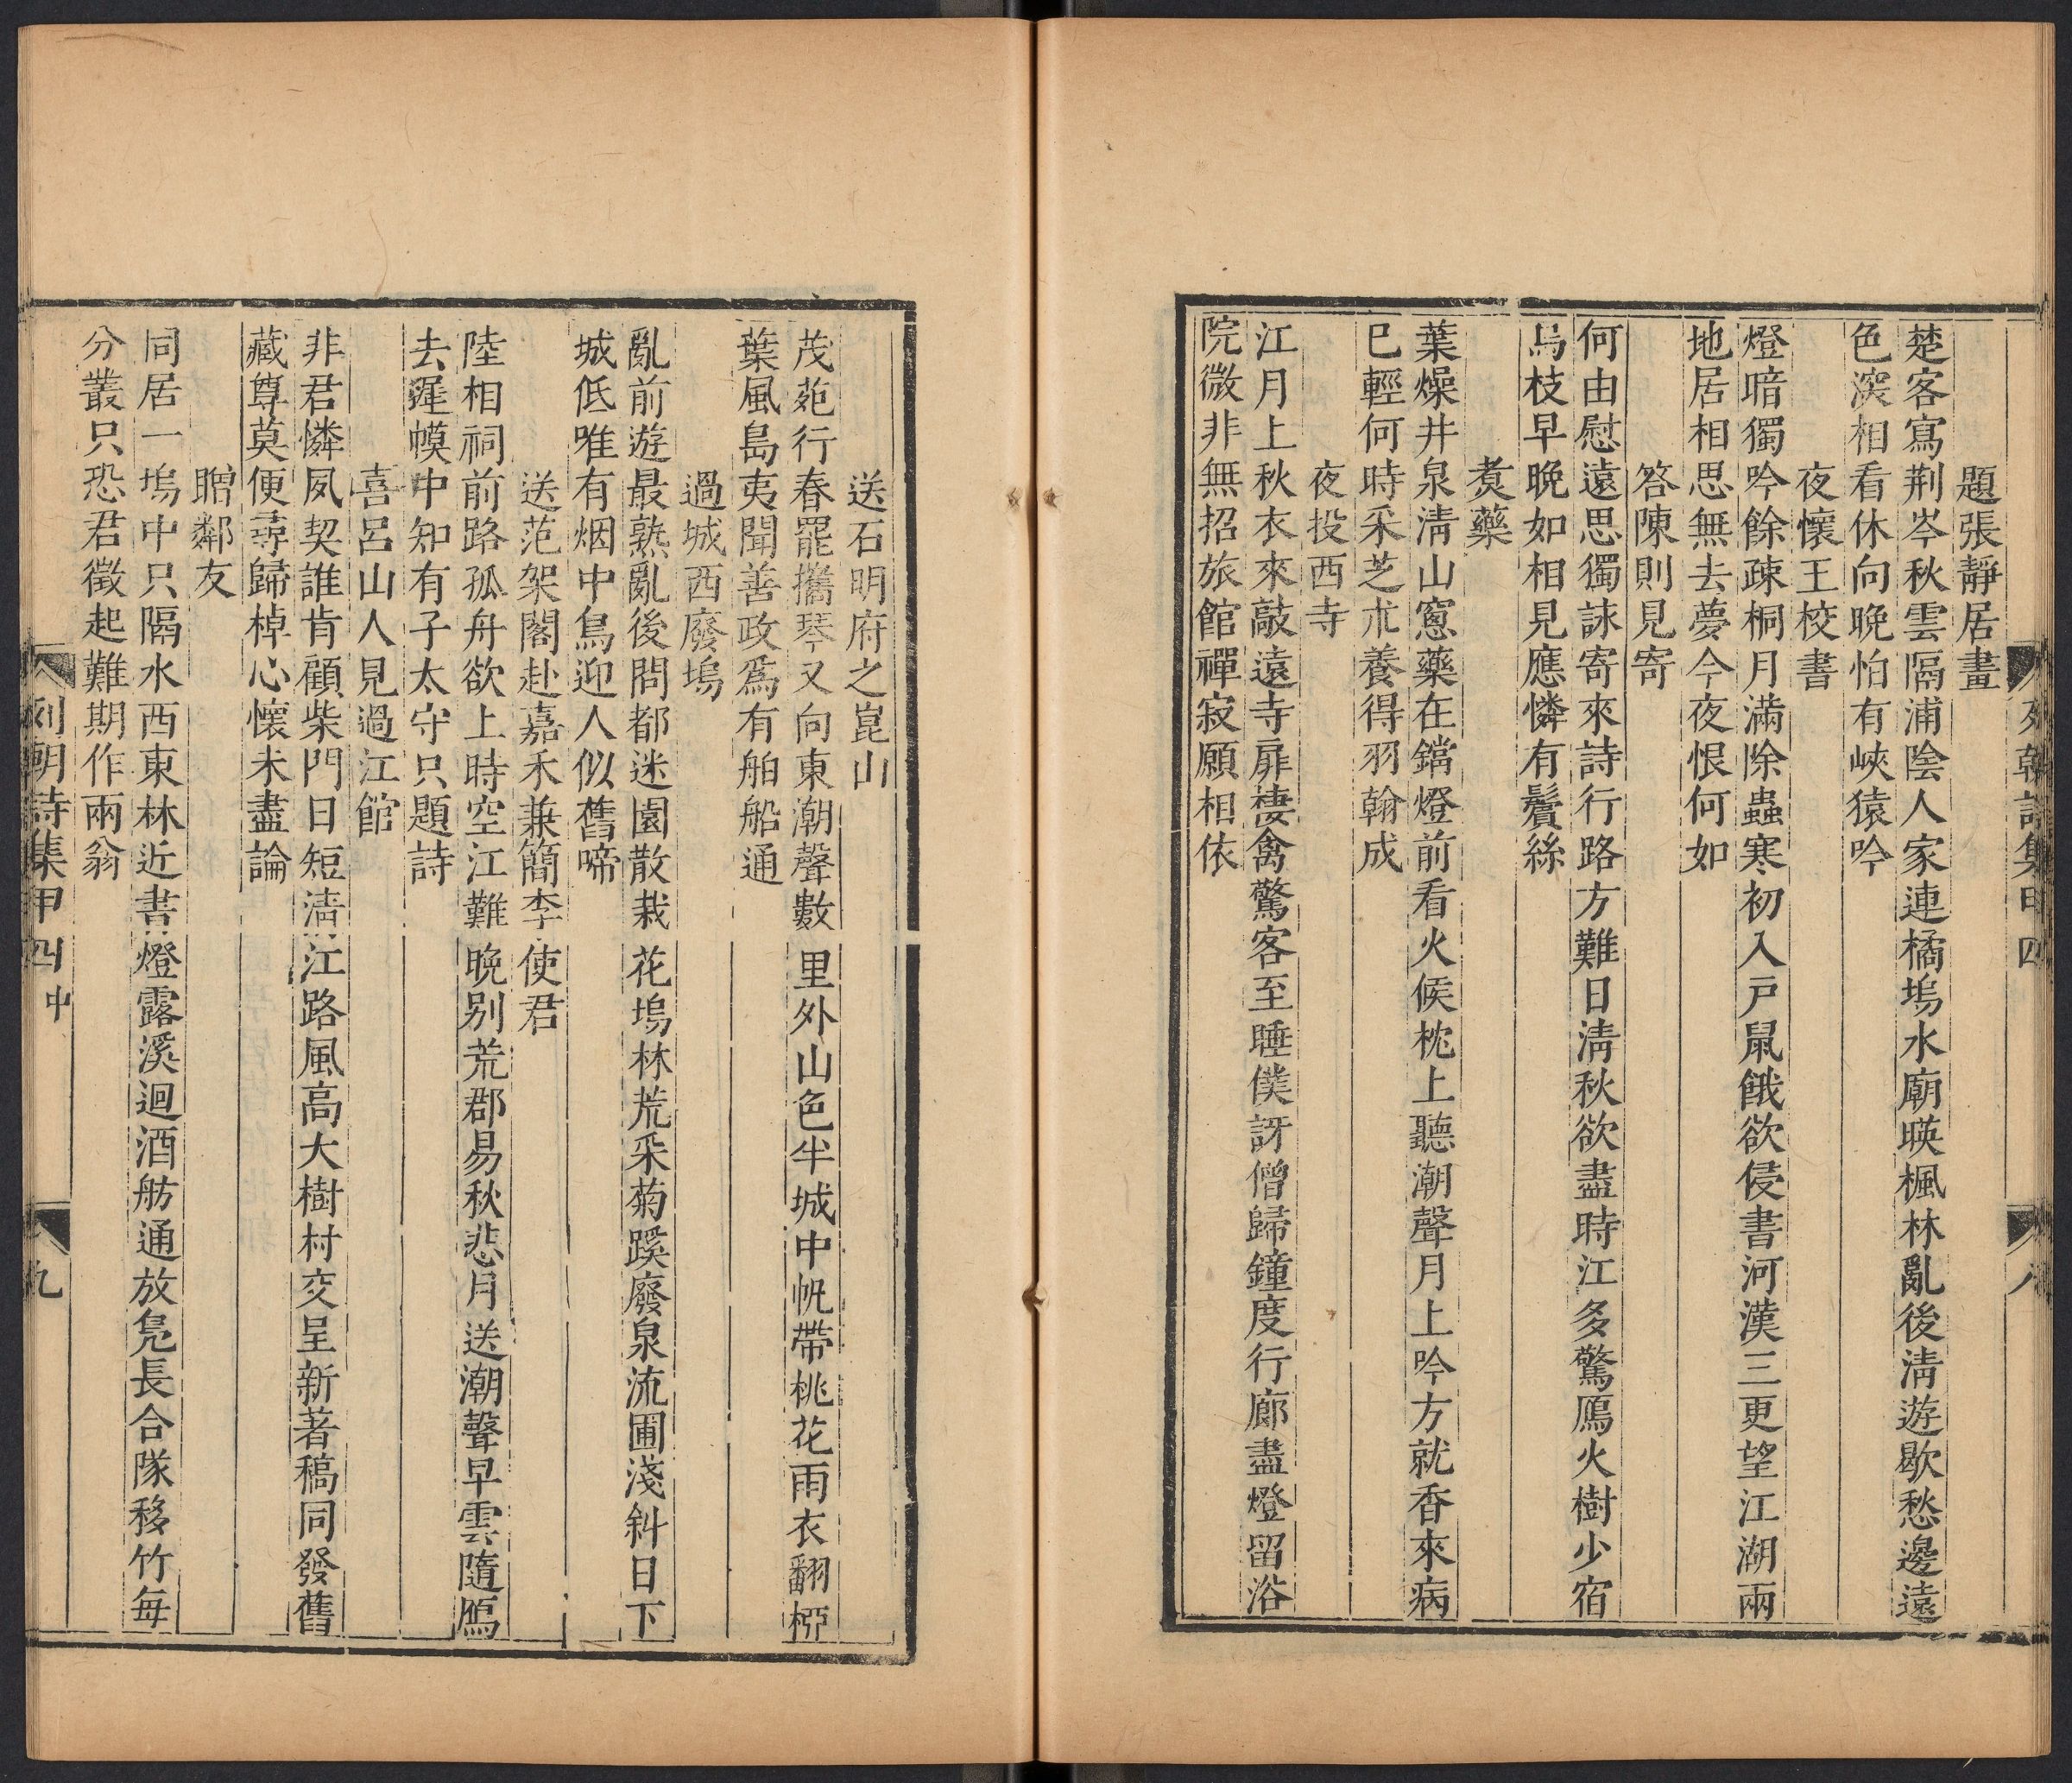 題張靜居畫
楚客寫荆岑秋雲隔浦陰人家連橘塢水廟暎楓林亂後淸遊歇愁邊遠
色深相看休向晚怕有峽猿吟
夜懷王校書
燈暗獨吟餘疎桐月滿除蟲寒初入戸鼠餓欲侵書河漢三更望江湖兩
地居相思無去夢今夜恨何如
答陳則見寄
何由慰遠思獨詠寄來詩行路方難日淸秋欲盡時江多驚鴈火樹少宿
烏枝早晚如相見應憐有鬢絲
煑藥
葉燥井泉淸山窻藥在鐺燈前看火候枕上聽潮聲月上吟方就香來病
巳輕何時采芝朮養得羽翰成
夜投西寺
江月上秋衣來敲遠寺扉棲禽驚客至睡僕訝僧歸鐘度行廊盡燈留浴
院微非無招旅館禪寂願相依
列朝詩集甲四
八
送石明府之崑山
茂苑行春罷攜琴又向東潮聲數里外山色半城中帆帶桃花雨衣翻椏
葉風島夷聞善政爲有舶船通
過城西廢塢
亂前遊最熟亂後問都迷園散栽花塢林荒采菊蹊廢泉流圃淺斜日下
城低唯有烟中鳥迎人似舊啼
送范架閣赴嘉禾兼簡李使君
陸相祠前路孤舟欲上時空江難晚别荒郡易秋悲月送潮聲早雲隨鴈
去遲幙中知有子太守只題詩
喜呂山人見過江館
非君憐夙契誰肯顧柴門日短淸江路風高大樹村交呈新著稿同發舊
藏尊莫便尋歸棹心懷未盡論
贈鄰友
同居一塢中只隔水西東林近書燈露溪迴酒舫通放鳧長合隊移竹每
分叢只恐君徵起難期作兩翁
列朝詩集甲四中
九